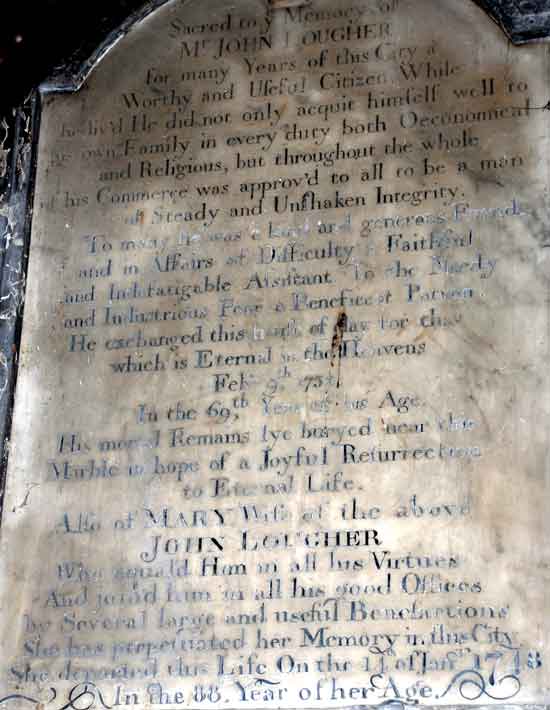 Sacred to yͤ Memory of
Mͬ JOHN LOUGHER
for many Years of this City a
Worthy and Uſeful Citizen. While
he liv'd He did not only acquit himſelf well to
his own Family in every duty both Oeconomical
and Religious, but throughout the whole
of his Commerce was approv'd to all to be a man
of Steady and Unſhaken Integrity.
To many he was a kind and generous Friend
and in Affairs of Difficulty a Faithful
and Indefatigable Aſsiſtant. To the Needy
and Induſtrious Poor a Beneficent Patron
He exchanged this of clay for that
which is Eternal in the Heavens
Febͬ 9.ᵗʰ
In the 69,ᵗʰ Year of his Age.
His mortal Remains lye buryed near this
Marble in hope of a Joyful Reſurrection
to Eternal Life.
Alſo of MARY Wife of the above
JOHN LOUGHER
Who equal'd Him in all his Virtues
And join'd him in all his good Offices
by Several large and uſeful Benefactions
She has perpetuated her Memory in this City.
She departed this Life On the 14 of Janʳʸ 1748
In the 88. Year of her Age.